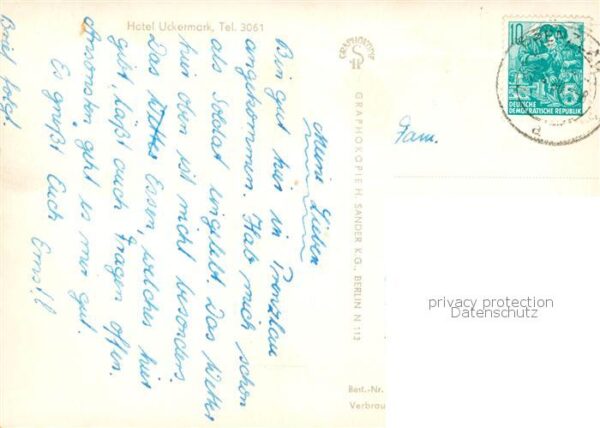 Hotel Uckermark, Tel. 3061
Meine Lieben
Bin gut hier in Prenzlau
angekommen. Hab mich schon
als Soldat eingelebt. Das Wetter
hier oben ist nicht besonders
Das Essen, welches hier
gibt, läßt auch Fragen offen.
Ansonsten geht es mir gut.
Es grüßt Euch
Brief folgt.
GRAPHOKOPIE
GRAPHOKOPIE H. SANDER K.G., BERLIN N 113
10
5
DEUTSCHE
DEMOKRATISCHE REPUBLIK
Fam.
privacy protection
Datenschutz
Best.-Nr.
Verbrau